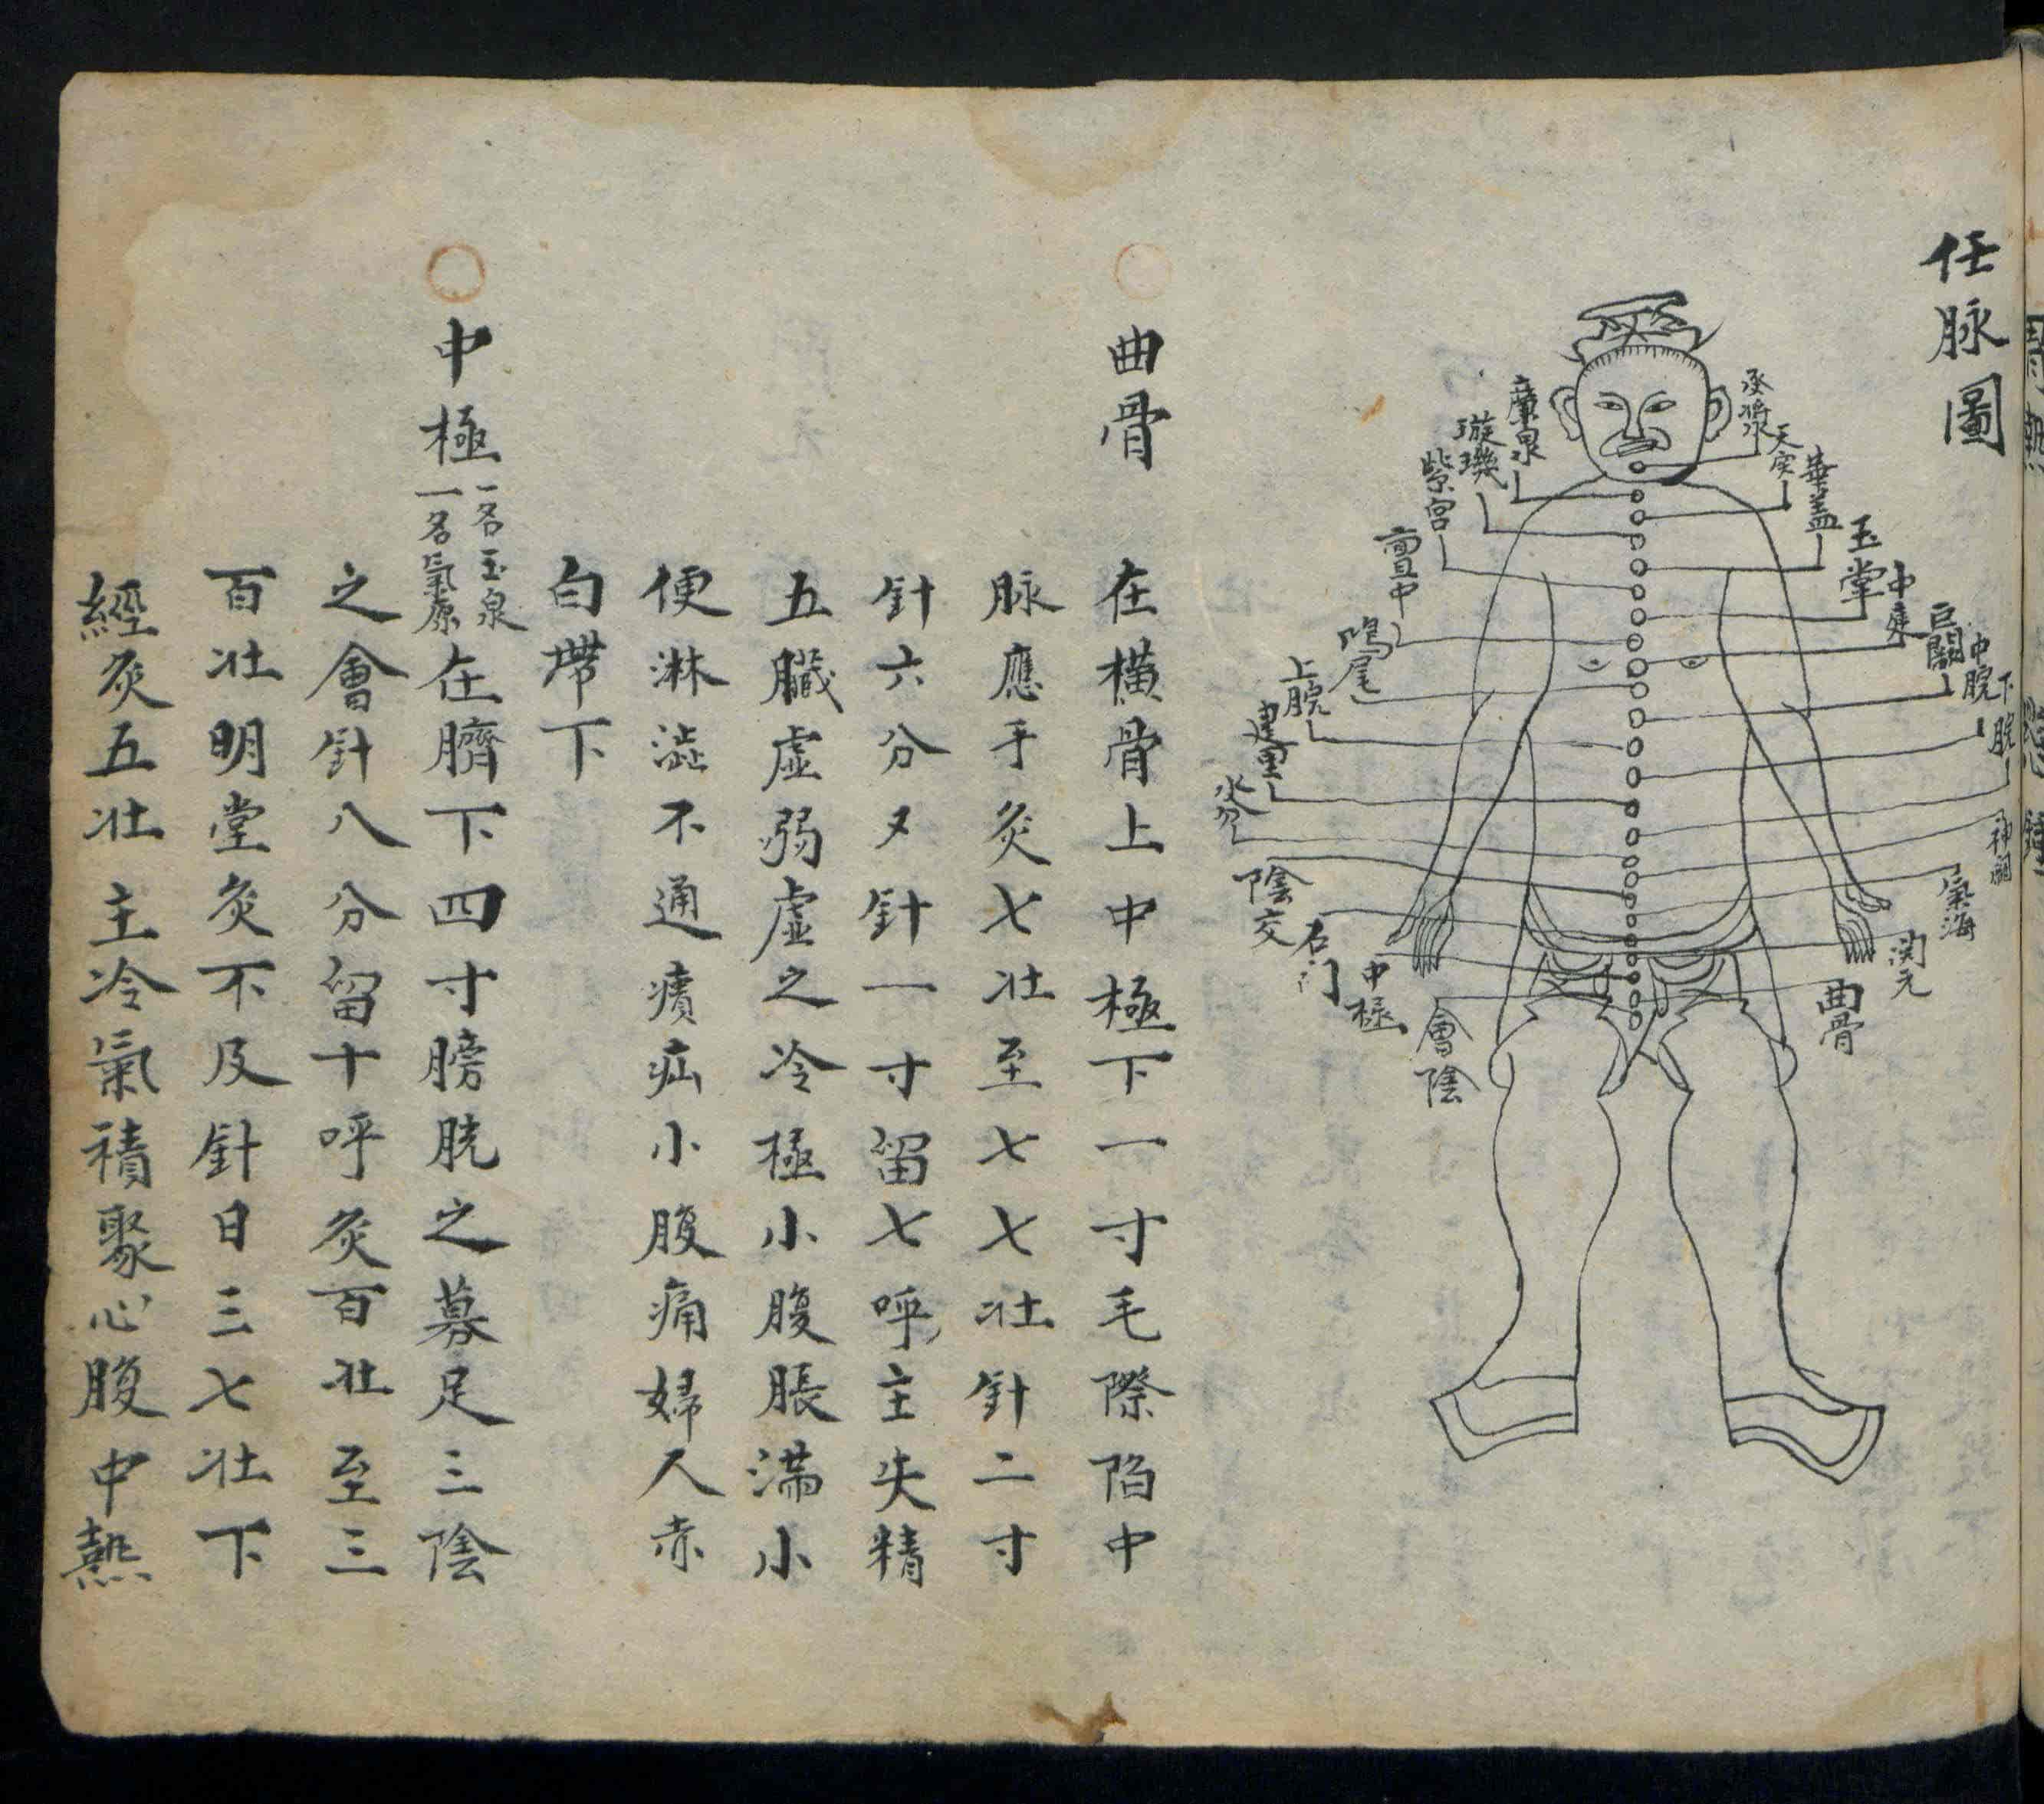 任脉圖
承漿
天突
華蓋
玉堂
中庭
巨闕
中脘
下脘
神闕
氣海
関元
曲骨
廉泉
璇璣
紫宮
亶中
鳩尾
上脘
建里
水分
陰交
石门
中極
會陰
曲骨
在橫骨上中極下一寸毛際陷中
脉應手灸七壯至七七壯針二寸
針六分又針一寸留七呼主失精
五臟虛弱虛之冷極小腹脹滿小
便淋澁不通㿉疝小腹痛婦人赤
白帶下
中極 一名玉泉 一名氣原 在臍下四寸膀胱之募足三陰
之會針八分留十呼灸百壯至三
百壯明堂灸不及針日三七壯下
經灸五壯主冷氣積聚心腹中熱